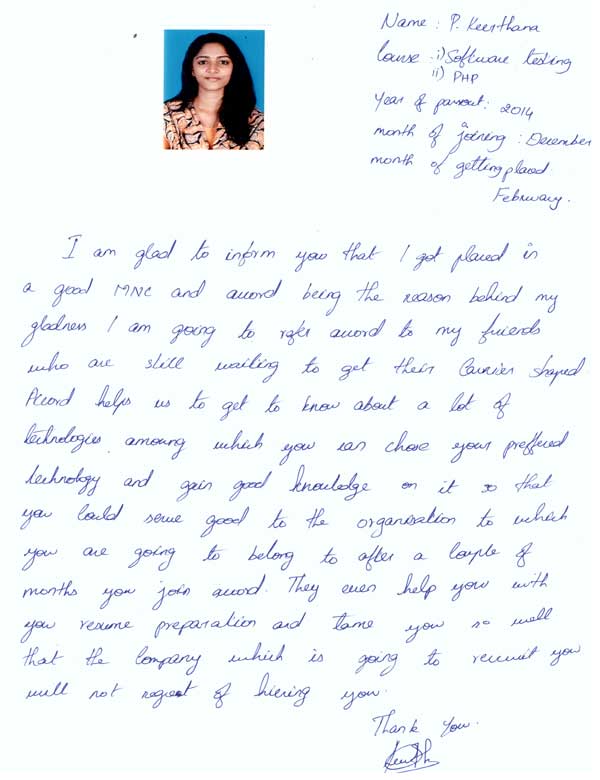 Name : P. Keerthana
Course : i) Software testing
ii) PHP
Year of passout : 2014
month of joining : December
month of getting placed
February.
I am glad to inform you that I got placed in
a good MNC and accord being the reason behind my
gladness I am going to refer accord to my friends
who are still waiting to get their Carrier shaped
Accord helps us to get to know about a lot of
technologies amoung which you can chose your preffered
technology and gain good knowledge on it so that
you could serve good to the organisation to which
you are going to belong to after a couple of
months you join accord. They even help you with
you resume preparation and tame you so well
that the company which is going to recruit you
will not regret of hiering you.
Thank you.